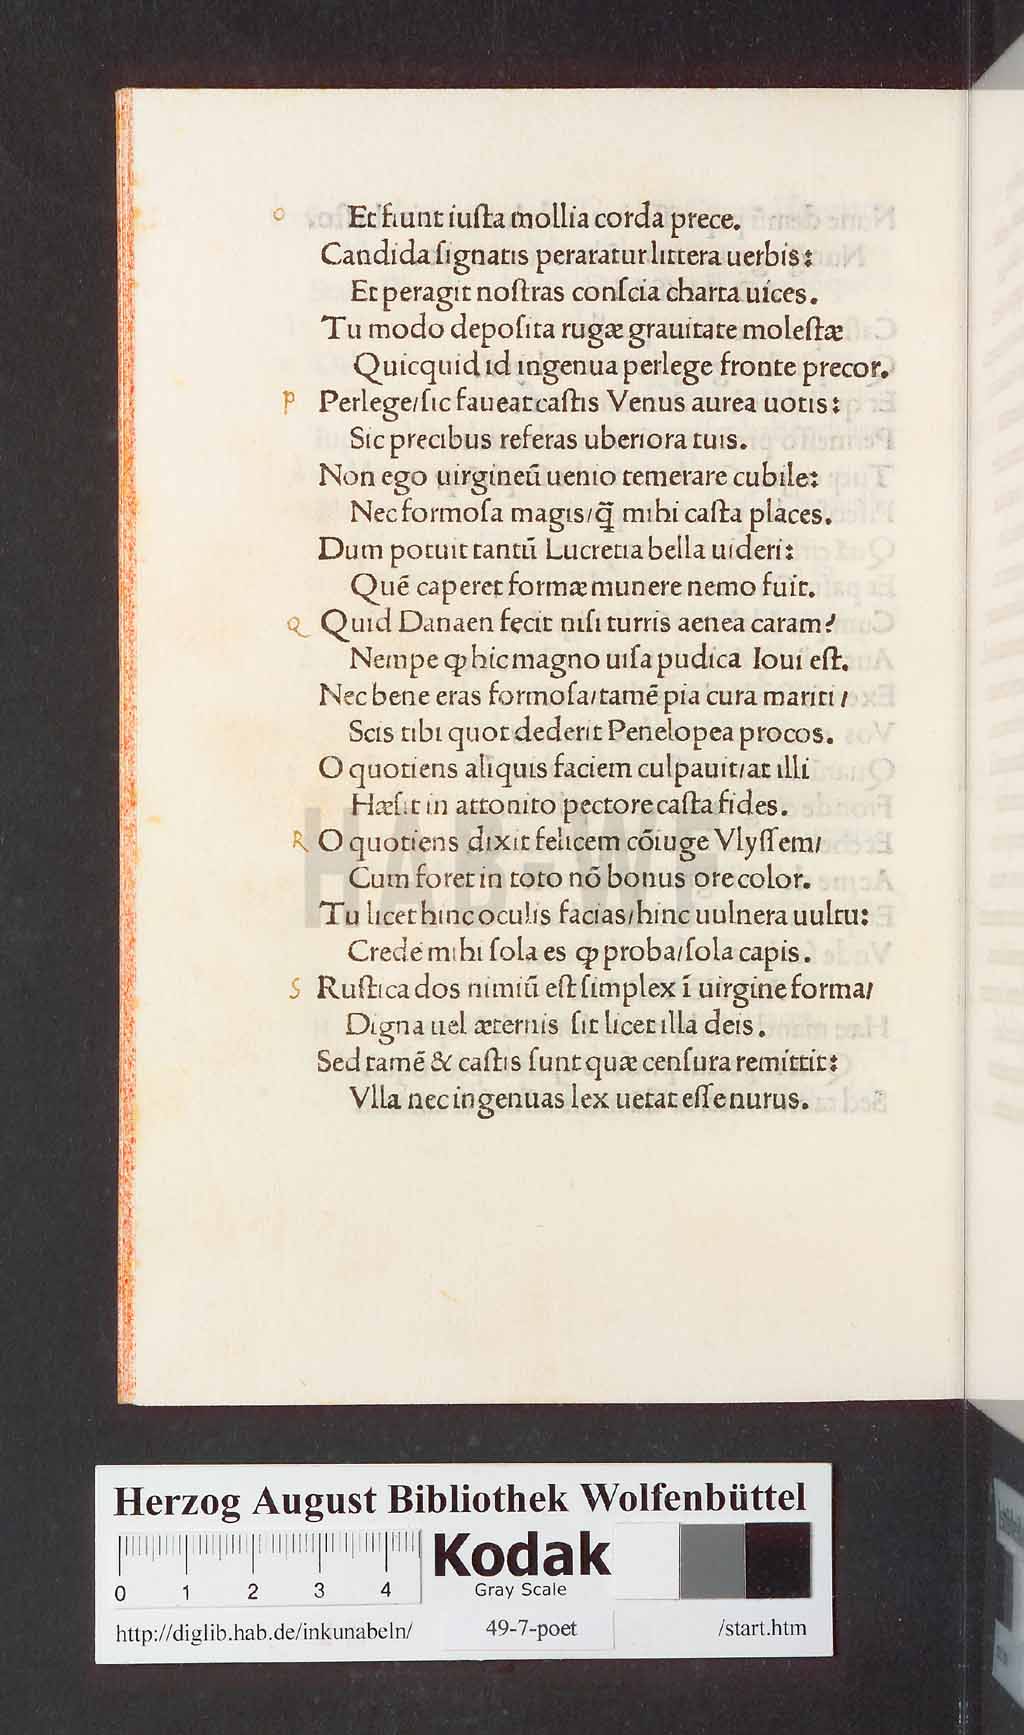 O Et fiunt iuſta mollia corda prece.
Candida ſignatis peraratur littera uerbis:
Et peragit noſtras conſcia charta uices.
Tu modo depoſita rugæ grauitate moleſtæ
Quicquid id ingenua perlege fronte precor.
P Perlege/ſic faueat caſtis Venus aurea uotis:
Sic precibus referas uberiora tuis.
Non ego uirgineū uenio temerare cubile:
Nec formoſa magis/q̄ mihi caſta places.
Dum potuit tantū Lucretia bella uideri:
Quē caperet formæ munere nemo fuit.
Q Quid Danaen fecit niſi turris aenea caram?
Nempe ꝙ hic magno uiſa pudica Ioui eſt.
Nec bene eras formoſa/tamē pia cura mariti/
Scis tibi quot dederit Penelopea procos.
O quotiens aliquis faciem culpauit/at illi
Hæſit in attonito pectore caſta fides.
R O quotiens dixit felicem cōiuge Vlyſſem/
Cum foret in toto nō bonus ore color.
Tu licet hinc oculis facias/hinc uulnera uultu:
Crede mihi ſola es ꝙ proba/ſola capis.
S Ruſtica dos nimiū eſt ſimplex ī uirgine forma/
Digna uel æternis ſit licet illa deis.
Sed tamē & caſtis ſunt quæ cenſura remittit:
Vlla nec ingenuas lex uetat eſſe nurus.
HAB-WF
Herzog August Bibliothek Wolfenbüttel
0 1 2 3 4
Kodak
Gray Scale
http://diglib.hab.de/inkunabeln/ 49-7-poet /start.htm